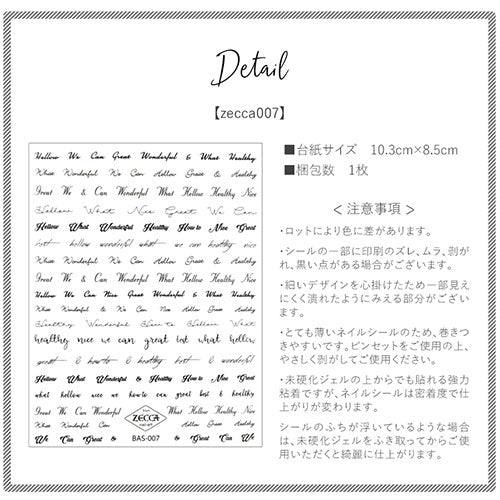 Detail
【zecca007】
■台紙サイズ　10.3cm×8.5cm
■梱包数　1枚
＜ 注意事項 ＞
・ロットにより色に差があります。
・シールの一部に印刷のズレ、ムラ、剥が
れ、黒い点がある場合がございます。
・細いデザインを心掛けたため一部見え
にくく潰れたようにみえる部分がござい
ます。
・とても薄いネイルシールのため、巻きつ
きやすいです。ピンセットをご使用の上、
やさしく剥がしてご使用ください。
・未硬化ジェルの上からでも貼れる強力
粘着ですが、ネイルシールは密着度で仕
上がりが変わります。
シールのふちが浮いているような場合
は、未硬化ジェルをふき取ってからご使用
いただくと綺麗に仕上がります。
Hollow We Can Great Wonderful & What Healthy
What Wonderful We Can Hollow Great & Healthy
Great We & Can Wonderful What Hollow Healthy Nice
Hollow What Nice Great We Can
Hollow What Wonderful Healthy How to Nice Great
but hollow wonderful what we can healthy nice
Great We & Can Wonderful What Hollow Healthy Nice
Hollow We Can Nice Great Wonderful & What Healthy
What Wonderful We Can Hollow Great & Healthy
Healthy Wonderful How to Hollow What
healthy nice we can great but what hollow
great & how to & healthy best & wonderful
Hollow What Wonderful & Healthy How to Nice Great
what hollow nice we how to can great but & healthy
Great We & Can
What Wonderful We
We Can Great
ZECCA
nail art
BAS-007
What Hollow Healthy
Hollow Great & Healthy
& Great Can We